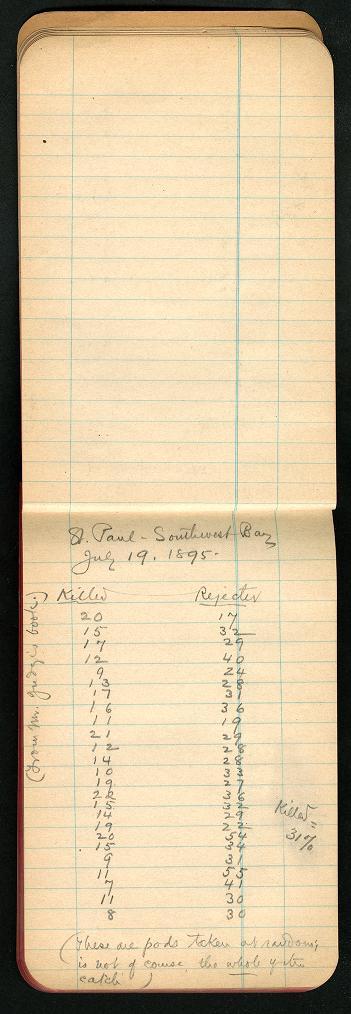 St. Paul - Southwest Bay
July 19. 1895.
Killed Rejected
20 17
15 32
17 29
12 40
9 24
13 28
17 31
16 36
11 19
21 29
12 28
14 28
10 33
19 27
22 36
15 32
14 29
19 22
20 54
15 34
9 31
11 55
7 41
11 30
8 30
Killed =
31%
(From Mr. Judge's book.)
(These are pods taken at random;
is not of course the whole of the
catch)